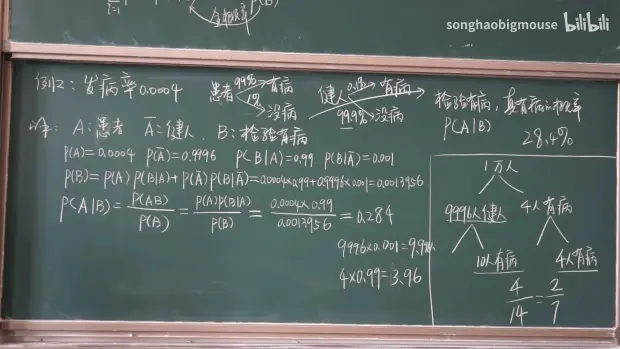 songhaobigmouse bilibili
i=1
全概率
P(B)
例2: 发病率0.0004
患者 99%→有病
1%→没病
健人 0.1%→有病
99.9%→没病
检验有病,真有病的概率
P(A|B) 28.4%
解: A:患者 Ā=健人、B:检验有病
P(A)=0.0004 P(Ā)=0.9996 P(B|A)=0.99 P(B|Ā)=0.001
P(B)=P(A)P(B|A)+P(Ā)P(B|Ā)=0.0004×0.99+0.9996×0.001=0.0013956
P(A|B)=P(AB)/P(B)=P(A)P(B|A)/P(B)=0.0004×0.99/0.0013956=0.284
9996×0.001=9.996
4×0.99=3.96
1万人
9996人健人 4人有病
10人有病 4人有病
4/14=2/7